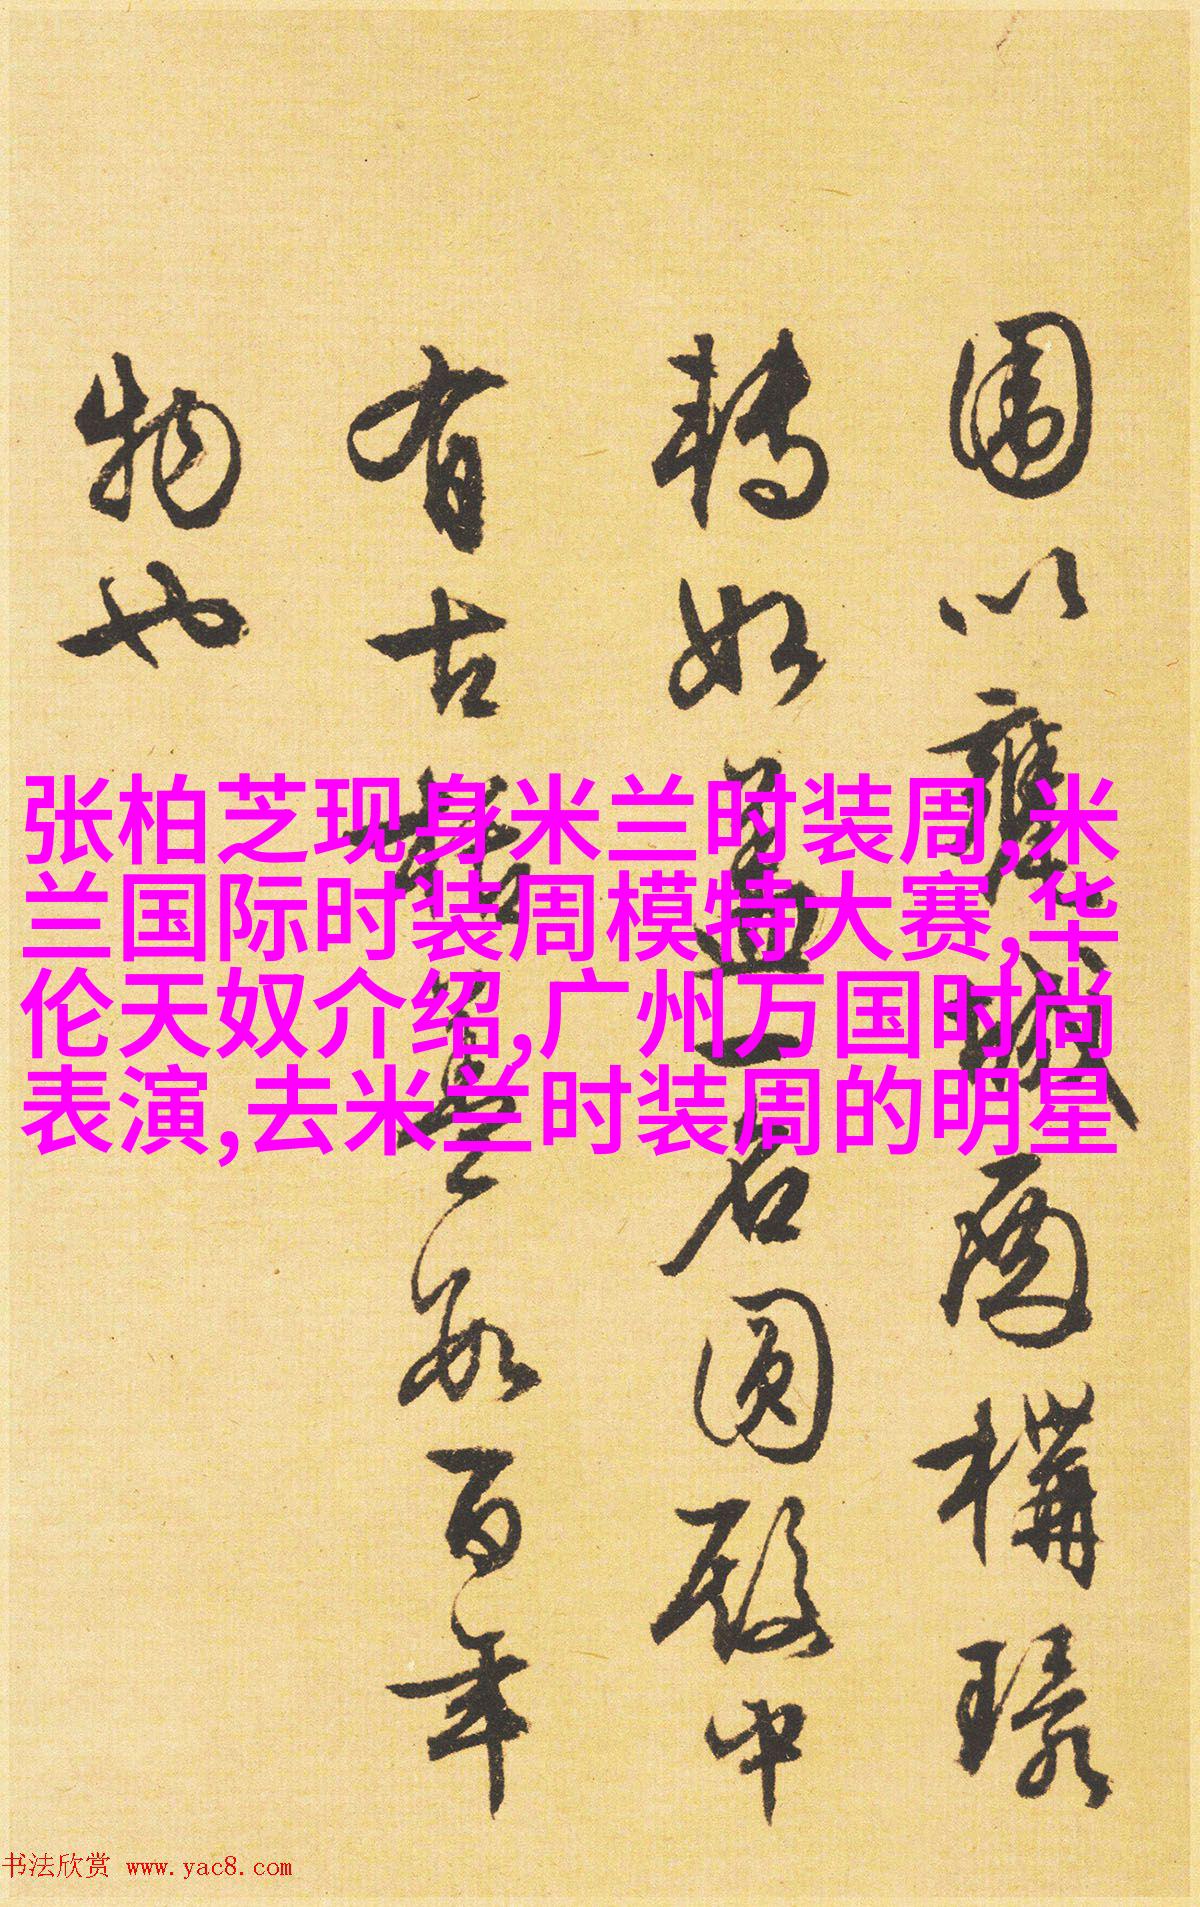 围以甕城两構
轉如盖一石圆殿中
有古栝是数百年
物也
张柏芝现身米兰时装周,米
兰国际时装周模特大赛,华
伦天奴介绍,广州万国时尚
表演,去米兰时装周的明星
书法欣赏 www.yac8.com